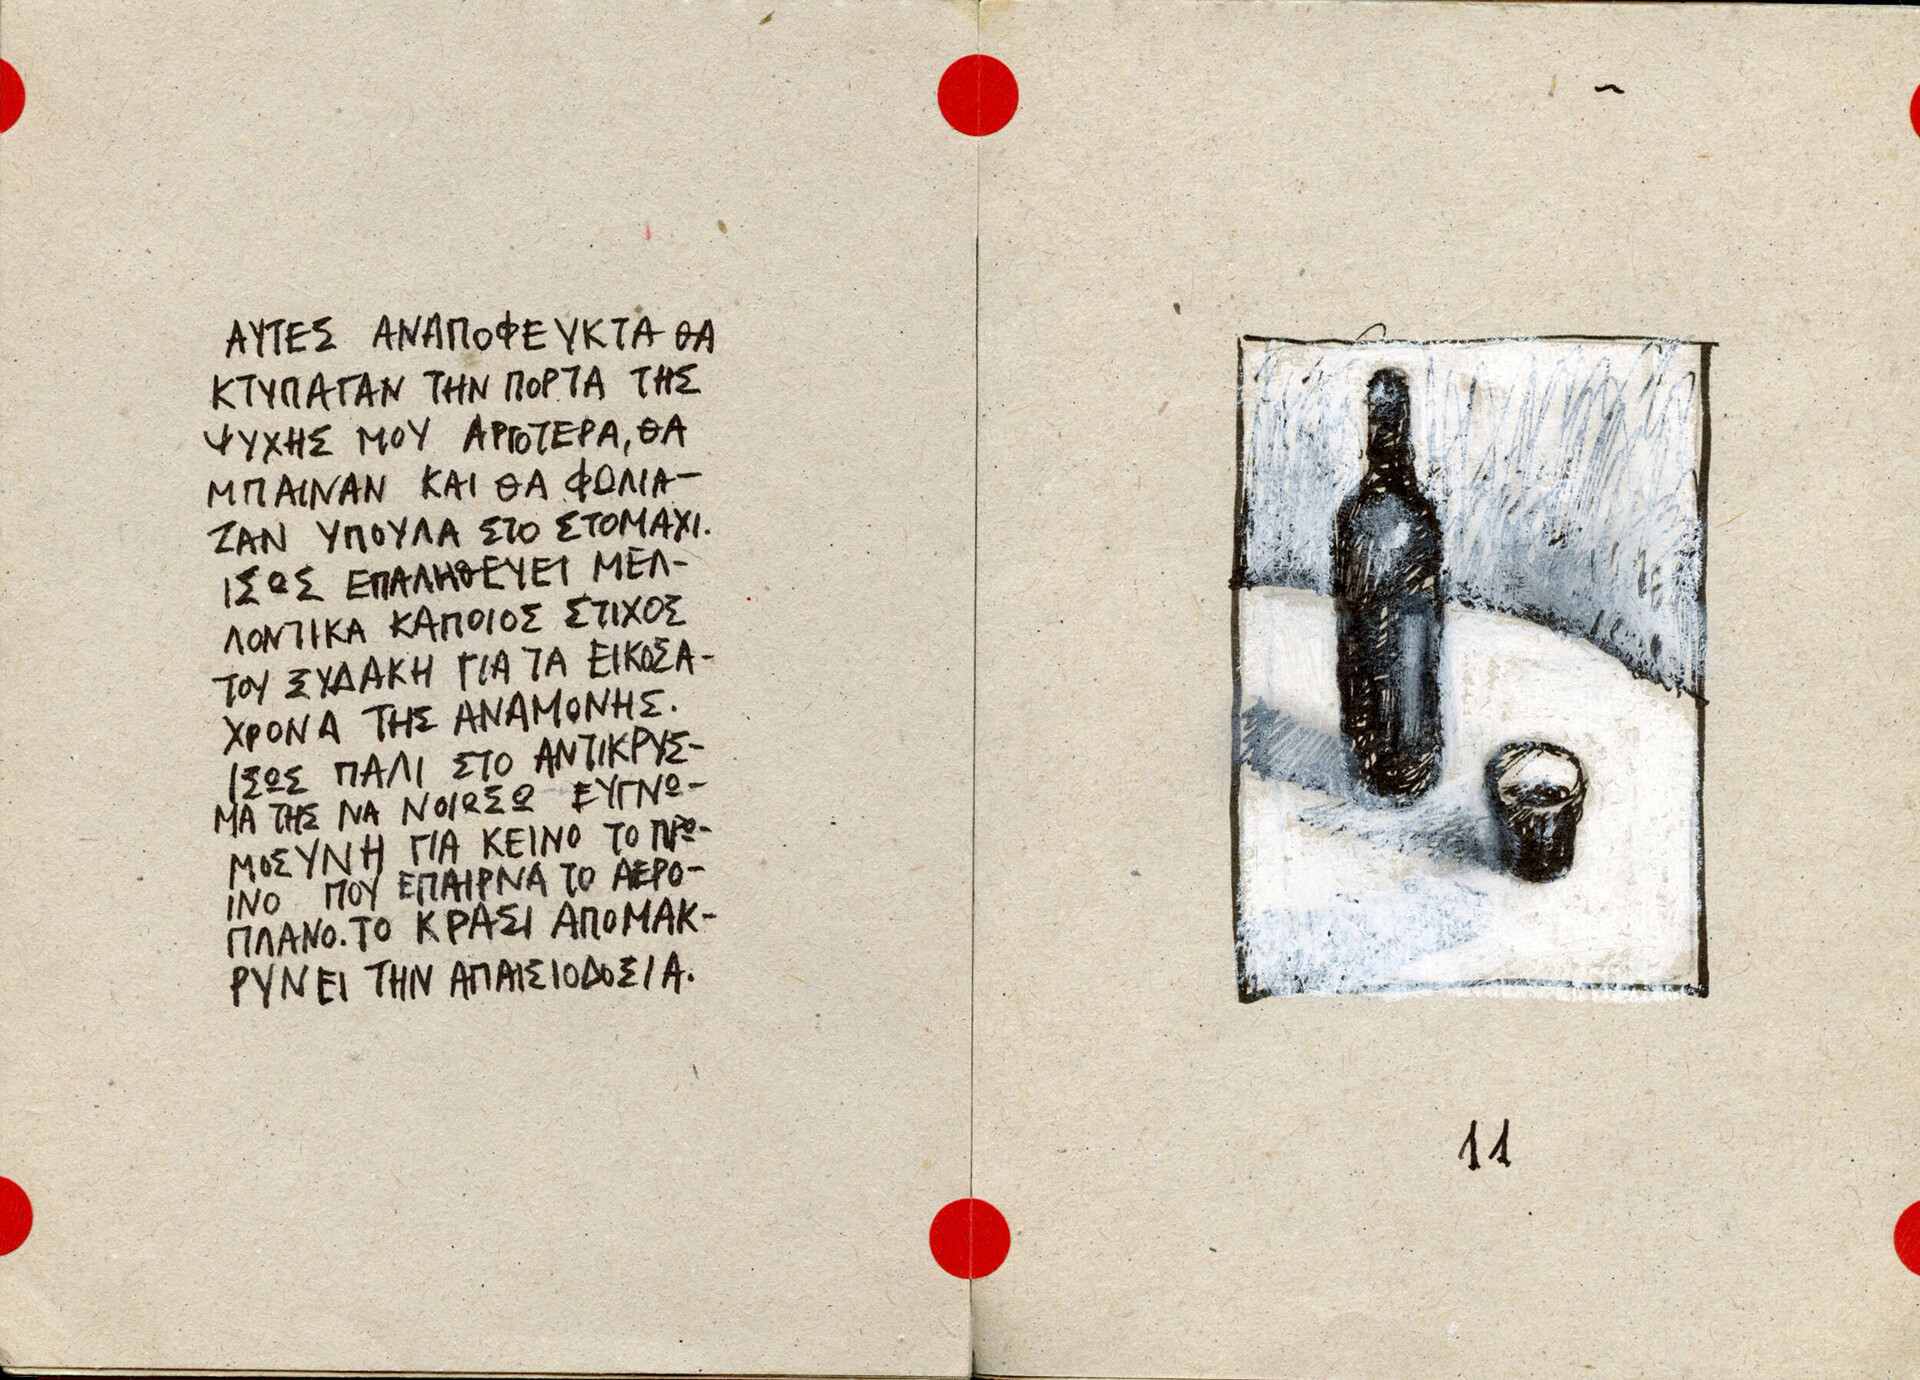 ΑΥΤΕΣ ΑΝΑΠΟΦΕΥΚΤΑ ΘΑ
ΚΤΥΠΑΓΑΝ ΤΗΝ ΠΟΡΤΑ ΤΗΣ
ΨΥΧΗΣ ΜΟΥ ΑΡΓΟΤΕΡΑ, ΘΑ
ΜΠΑΙΝΑΝ ΚΑΙ ΘΑ ΦΩΛΙΑ-
ΖΑΝ ΥΠΟΥΛΑ ΣΤΟ ΣΤΟΜΑΧΙ.
ΙΣΩΣ ΕΠΑΛΗΘΕΥΕΙ ΜΕΛ-
ΛΟΝΤΙΚΑ ΚΑΠΟΙΟΣ ΣΤΙΧΟΣ
ΤΟΥ ΞΥΔΑΚΗ ΓΙΑ ΤΑ ΕΙΚΟΣΑ-
ΧΡΟΝΑ ΤΗΣ ΑΝΑΜΟΝΗΣ.
ΙΣΩΣ ΠΑΛΙ ΣΤΟ ΑΝΤΙΚΡΥΣ-
ΜΑ ΤΗΣ ΝΑ ΝΟΙΩΣΩ ΕΥΓΝΩ-
ΜΟΣΥΝΗ ΓΙΑ ΚΕΙΝΟ ΤΟ ΠΡΩ-
ΙΝΟ ΠΟΥ ΕΠΑΙΡΝΑ ΤΟ ΑΕΡΟ-
ΠΛΑΝΟ. ΤΟ ΚΡΑΣΙ ΑΠΟΜΑΚ-
ΡΥΝΕΙ ΤΗΝ ΑΠΑΙΣΙΟΔΟΣΙΑ.
11